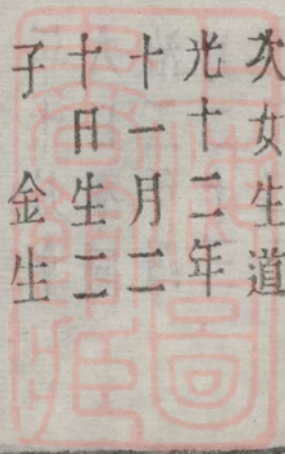 次女生道
光十二年
十一月二
十日生二
子　金生